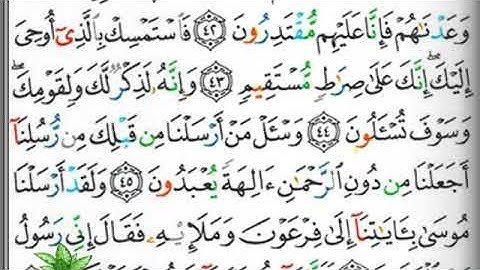 وَعَدْنَـٰهُمْ فَإِنَّا عَلَيْهِم مُّقْتَدِرُونَ ٤٢ فَٱسْتَمْسِكْ بِٱلَّذِىٓ أُوحِىَ
إِلَيْكَ ۖ إِنَّكَ عَلَىٰ صِرَٰطٍ مُّسْتَقِيمٍ ٤٣ وَإِنَّهُۥ لَذِكْرٌ لَّكَ وَلِقَوْمِكَ ۖ
وَسَوْفَ تُسْـَٔلُونَ ٤٤ وَسْـَٔلْ مَنْ أَرْسَلْنَا مِن قَبْلِكَ مِن رُّسُلِنَآ
أَجَعَلْنَا مِن دُونِ ٱلرَّحْمَـٰنِ ءَالِهَةً يُعْبَدُونَ ٤٥ وَلَقَدْ أَرْسَلْنَا
مُوسَىٰ بِـَٔايَـٰتِنَآ إِلَىٰ فِرْعَوْنَ وَمَلَإِي۟هِۦ فَقَالَ إِنِّى رَسُولُ